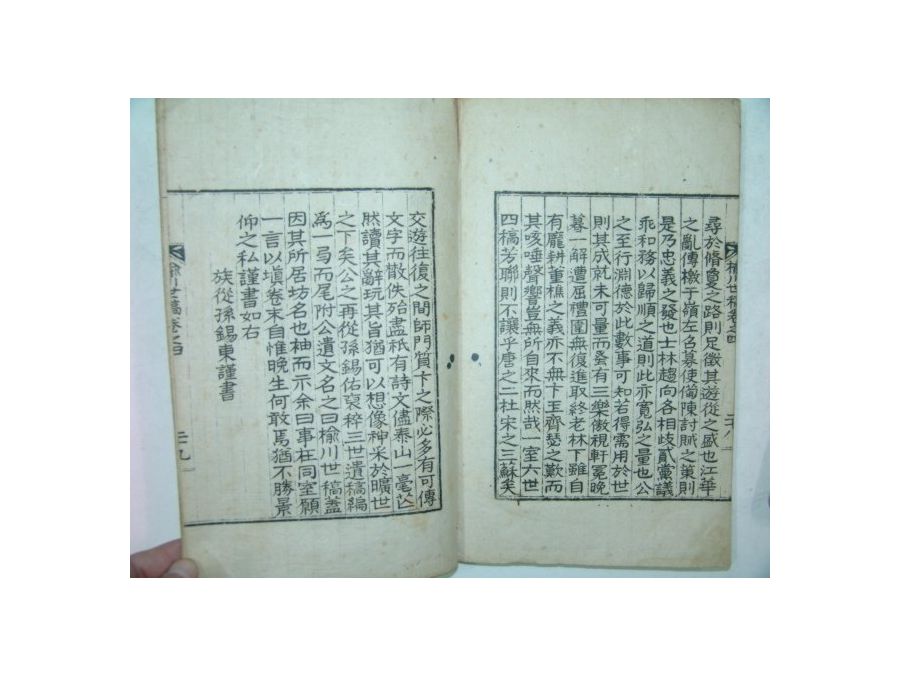 尋於脩夐之路則足徵其遊從之盛也江華
之亂傳檄于嶺左名募使備陳討賊之策則
是乃忠義之發也士林趨向各相歧貳黨議
乖和務以歸順之道則此亦寬弘之量也公
之至行淵德於此數事可知若得需用於世
則其成就未可量而蚤有三樂傲視軒冕晚
暮一解遭屈禮圍無復進取終老林下雖自
有龐耕董樵之義亦不無卞玉齊瑟之歎而
其咳唾聲響豈無所自來而然哉一室六世
四稿芳聯則不讓乎唐之二杜宋之三蘇矣
榆川世稿卷之四
二十八
交遊往復之間師門質卞之際必多有可傳
文字而散佚殆盡秖有詩文僅泰山一毫芒
然讀其辭玩其旨猶可以想像神采於曠世
之下矣公之再從孫錫佑裒稡三世遺稿編
爲一局而尾附公遺文名之曰榆川世稿盖
因其所居坊名也袖而示余曰事在同室願
一言以塡卷末自惟晚生何敢焉猶不勝景
仰之私謹書如右
族從孫錫東謹書
榆川世稿卷之四
二十九